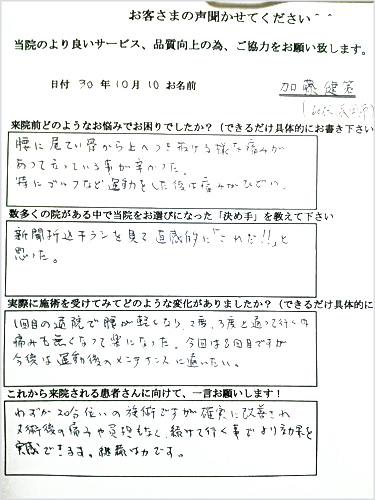 お客さまの声聞かせてください^^
当院のより良いサービス、品質向上の為、ご協力をお願い致します。
日付 30年10月10 お名前 加藤健
来院前どのようなお悩みでお困りでしたか？（できるだけ具体的にお書き下さい
腰に尾てい骨から上へつき抜ける様な痛みが
あって立っている事が辛かった。
特にゴルフなど運動をした後は痛みがひどい。
数多くの院がある中で当院をお選びになった「決め手」を教えて下さい
新聞折込チランを見て直感的に「これだ!!」と
思った。
実際に施術を受けてみてどのような変化がありましたか？（できるだけ具体的に
1回目の通院で腰が軽くなり、2度、3度と通って行くと
痛みも無くなって楽になった。今回は8回目ですが
今後は運動後のメンテナンスに通いたい。
これから来院される患者さんに向けて、一言お願いします！
わずか20分位いの施術ですが確実に改善され
術後の痛みや負担もなく、続けて行く事でより効果を
実感できます。継続は力です。